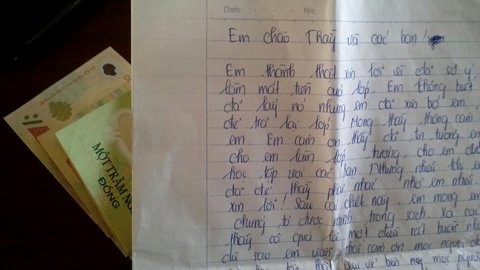 Date No.
Em chào Thầy và các bạn!
Em thành thật xin lỗi vì đã sơ ý
làm mất tiền quỹ lớp. Em không biết
đã lấy nó nhưng em đã xin bố em
để trả lại lớp. Mong thầy thông cảm
em. Em cảm ơn thầy đã tin tưởng em
cho em làm lớp trưởng, cho em được
học tập với các bạn. Nhưng nhiều khi em
đã để thầy phải nhắc nhở em nhiều
xin lỗi! Sau cái chết này em mong em
chứng tỏ được mình trong sạch. Xa các
thầy cô quả là một điều rất buồn
em vẫn cảm ơn mọi người
MỘT TRĂM
ĐỒNG